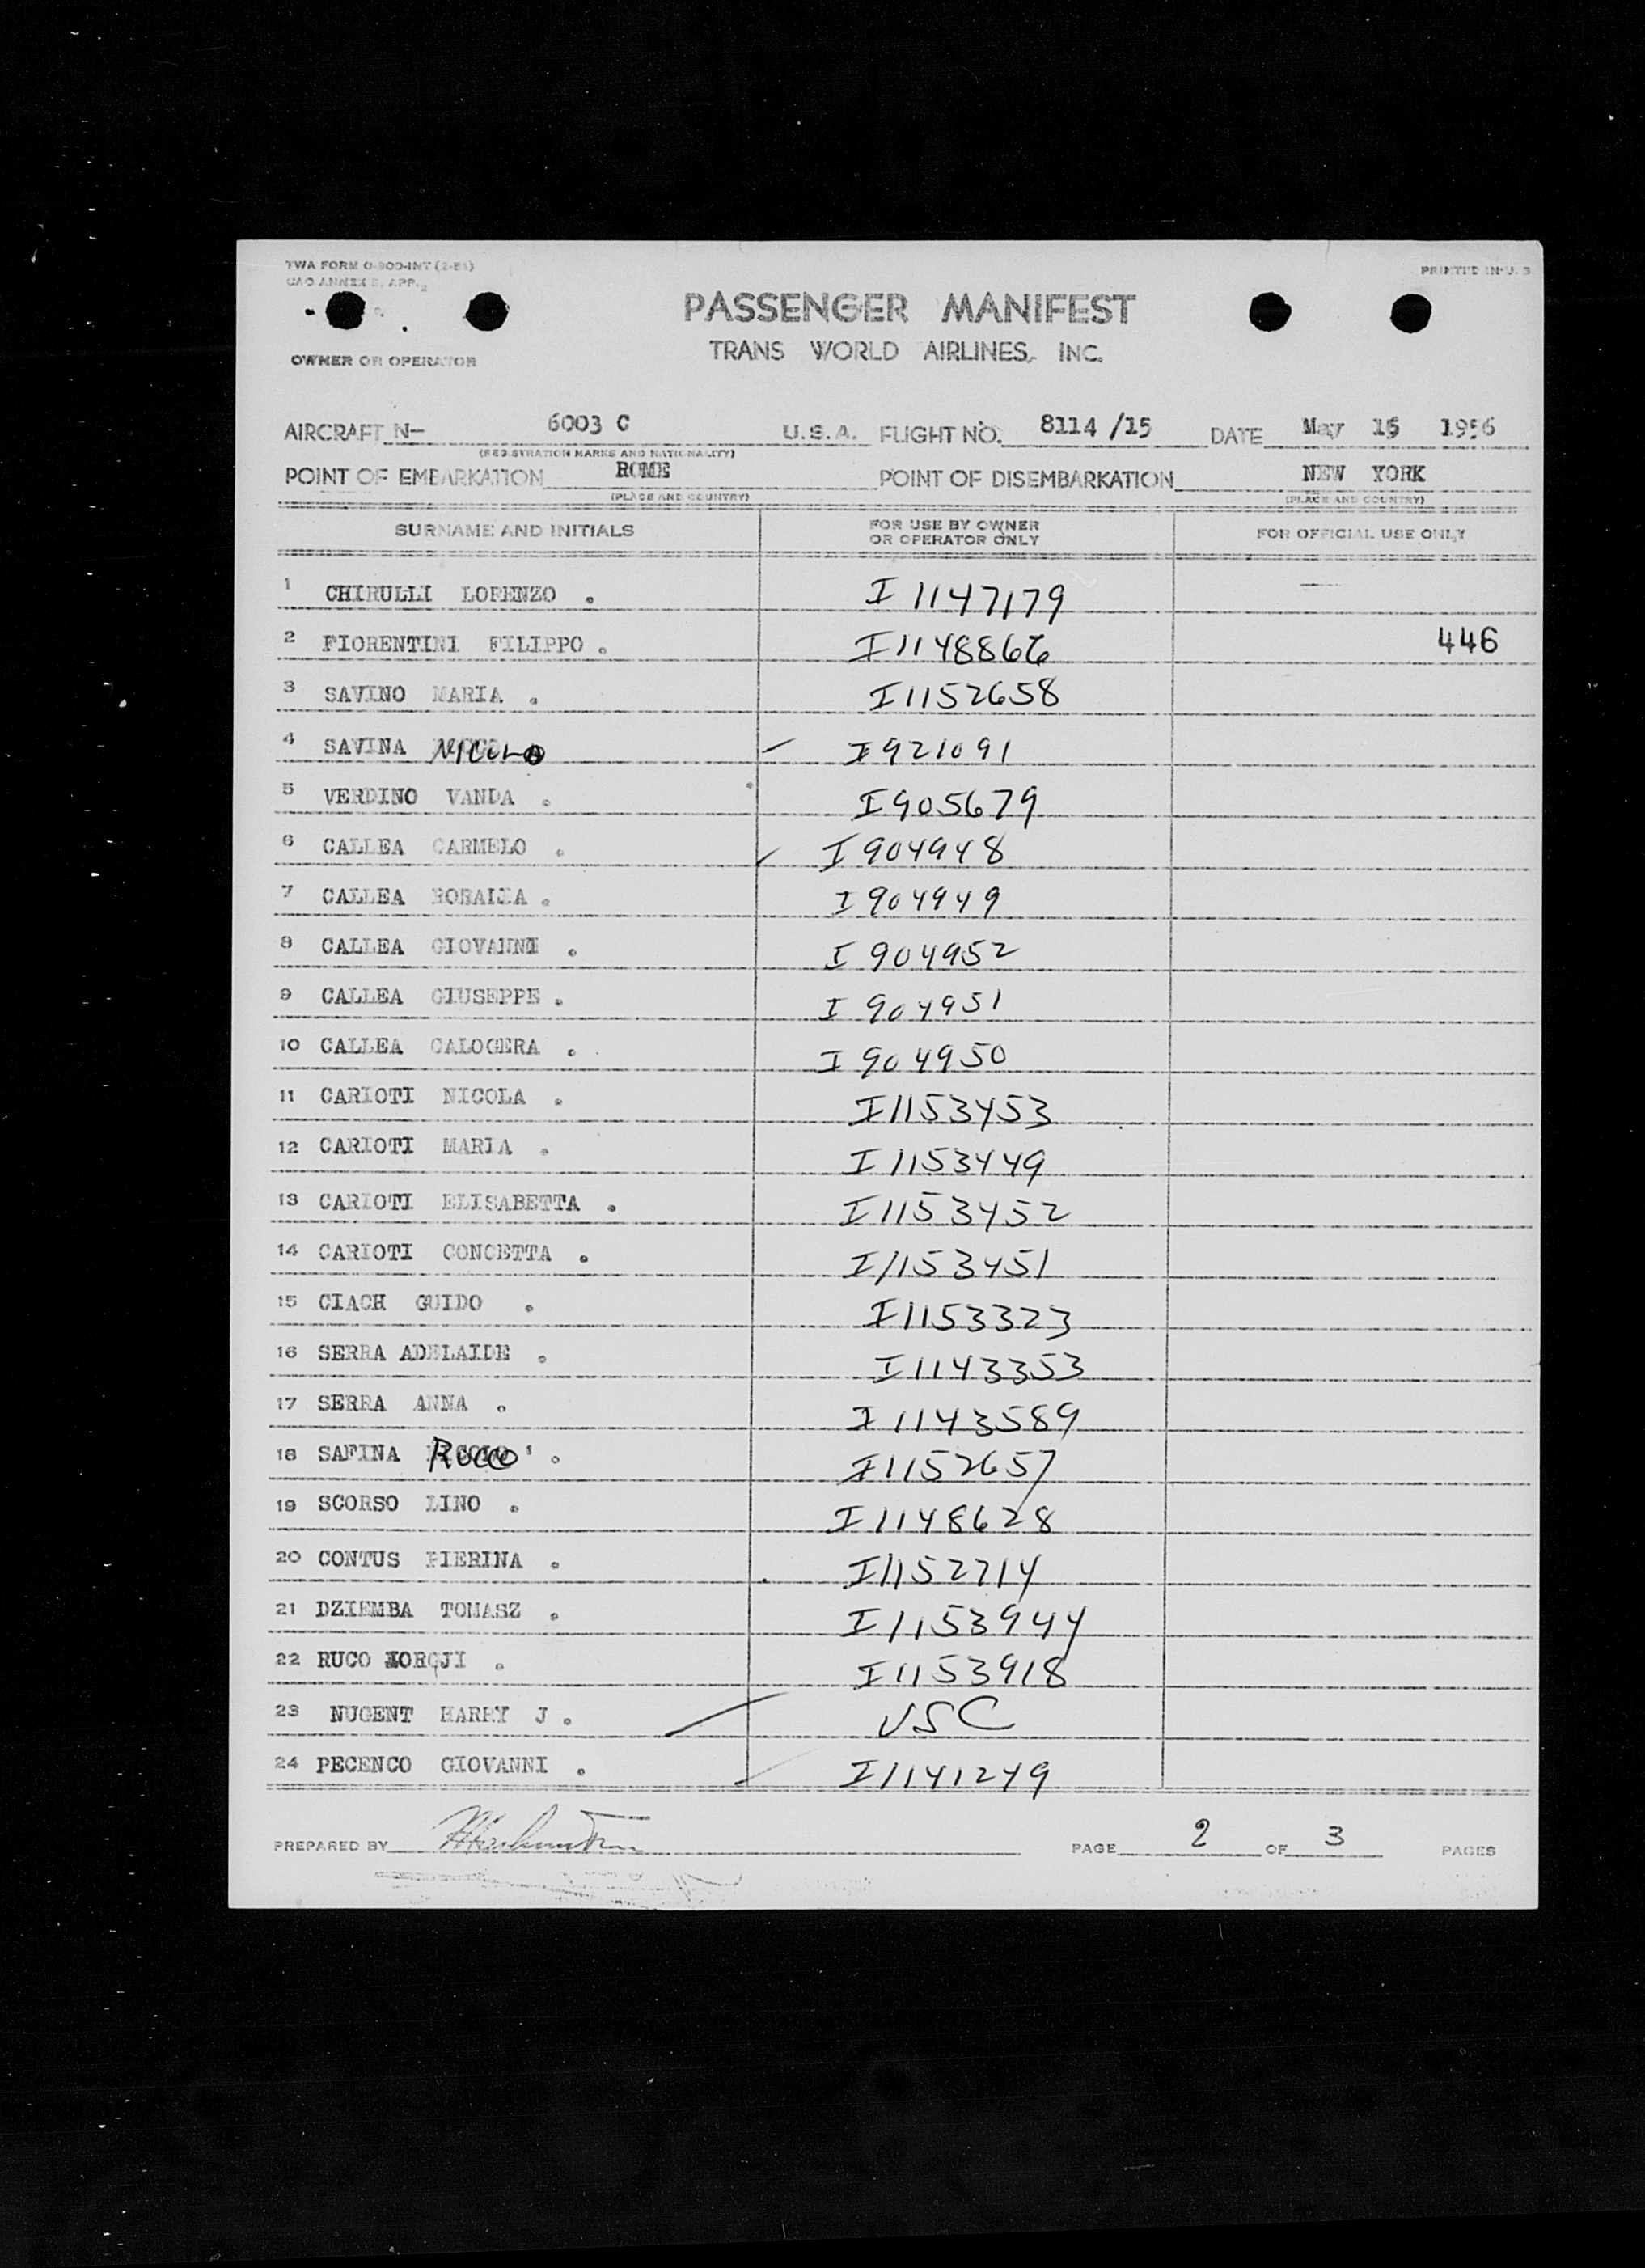 TWA FORM O-800-INT
PRINTED IN U. S.
PASSENGER MANIFEST
TRANS WORLD AIRLINES, INC.
OWNER OR OPERATOR
AIRCRAFT N- 6003 C U.S.A. FLIGHT NO. 8114 /15 DATE May 15 1956
(REGISTRATION MARKS AND NATIONALITY)
POINT OF EMBARKATION ROME POINT OF DISEMBARKATION NEW YORK
(PLACE AND COUNTRY) (PLACE AND COUNTRY)
SURNAME AND INITIALS FOR USE BY OWNER OR OPERATOR ONLY FOR OFFICIAL USE ONLY
1 CHIRULLI LORENZO . I 1147179
2 FIORENTINI FILIPPO . I1148866 446
3 SAVINO MARIA . I1152658
4 SAVINA NICOLO I921091
5 VERDINO VANDA . I905679
6 CALLEA CARMELO . I904948
7 CALLEA ROSALIA . I904949
8 CALLEA GIOVANNI . I 904952
9 CALLEA GIUSEPPE . I 904951
10 CALLEA CALOGERA . I 904950
11 CARIOTI NICOLA . I1153453
12 CARIOTI MARIA . I1153449
13 CARIOTI ELISABETTA . I1153452
14 CARIOTI CONCETTA . I1153451
15 CIACH GUIDO . I1153323
16 SERRA ADELAIDE . I1143353
17 SERRA ANNA . I 1143589
18 SAFINA Rocco ' . I1152657
19 SCORSO LINO . I1148628
20 CONTUS PIERINA . I1152714
21 DZIEMBA TOMASZ . I1153944
22 RUCO . I1153918
23 NUGENT HARRY J . USC
24 PECENCO GIOVANNI . I1141249
PREPARED BY PAGE 2 OF 3 PAGES